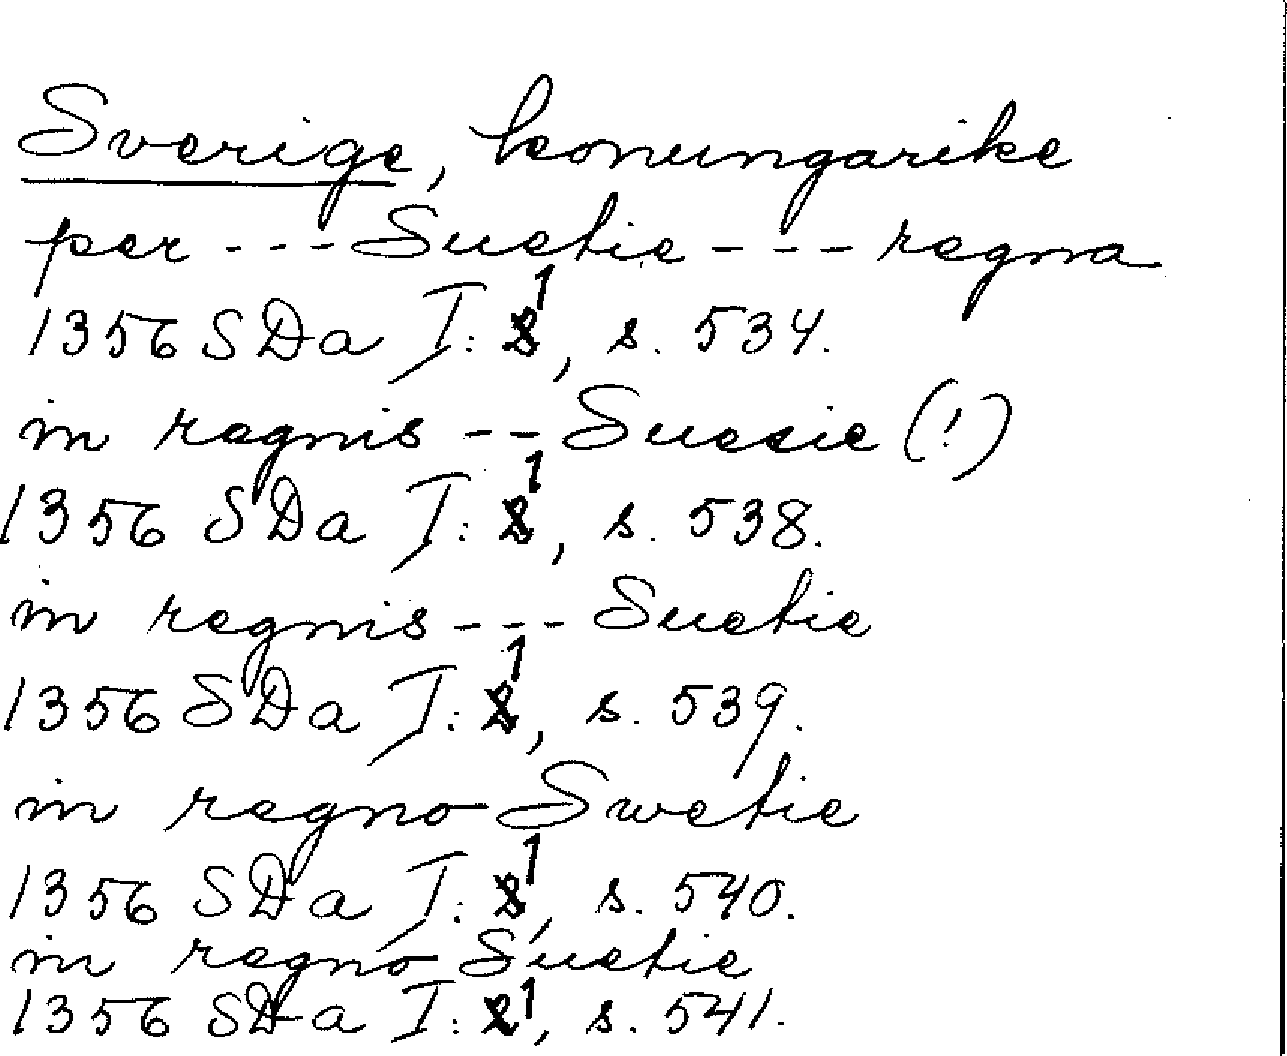 Sverige, konungarike
per --- Suetie --- regna
1356 SDa I: 1, s. 534.
in regnis -- Suecie (!)
1356 SDa I: 1, s. 538.
in regnis --- Suetie
1356 SDa I: 1, s. 539.
in regno Swetie
1356 SDa I: 1, s. 540.
in regno Suetie
1356 SDa I: 1, s. 541.